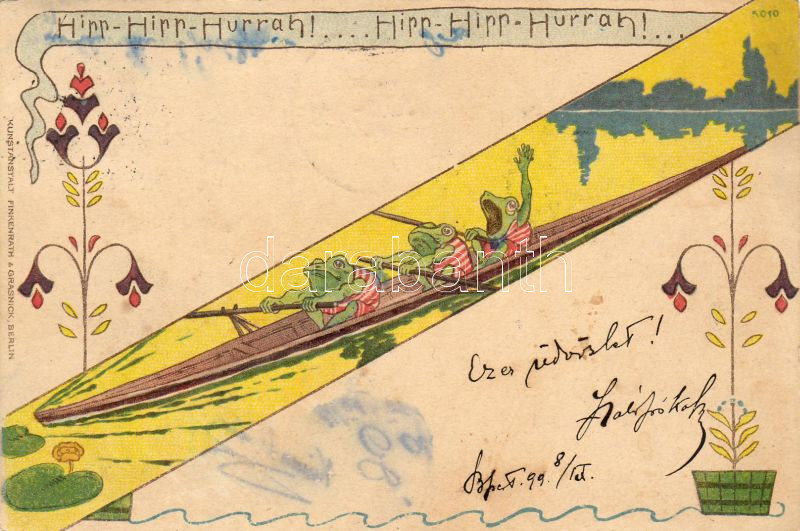 Hipp-Hipp-Hurrah!.... Hipp-Hipp-Hurrah!...
5010
KUNSTANSTALT FINKENRATH & GRASNICK, BERLIN
darabanth
Ezer üdvözlet!
Bpest. 99. 8/